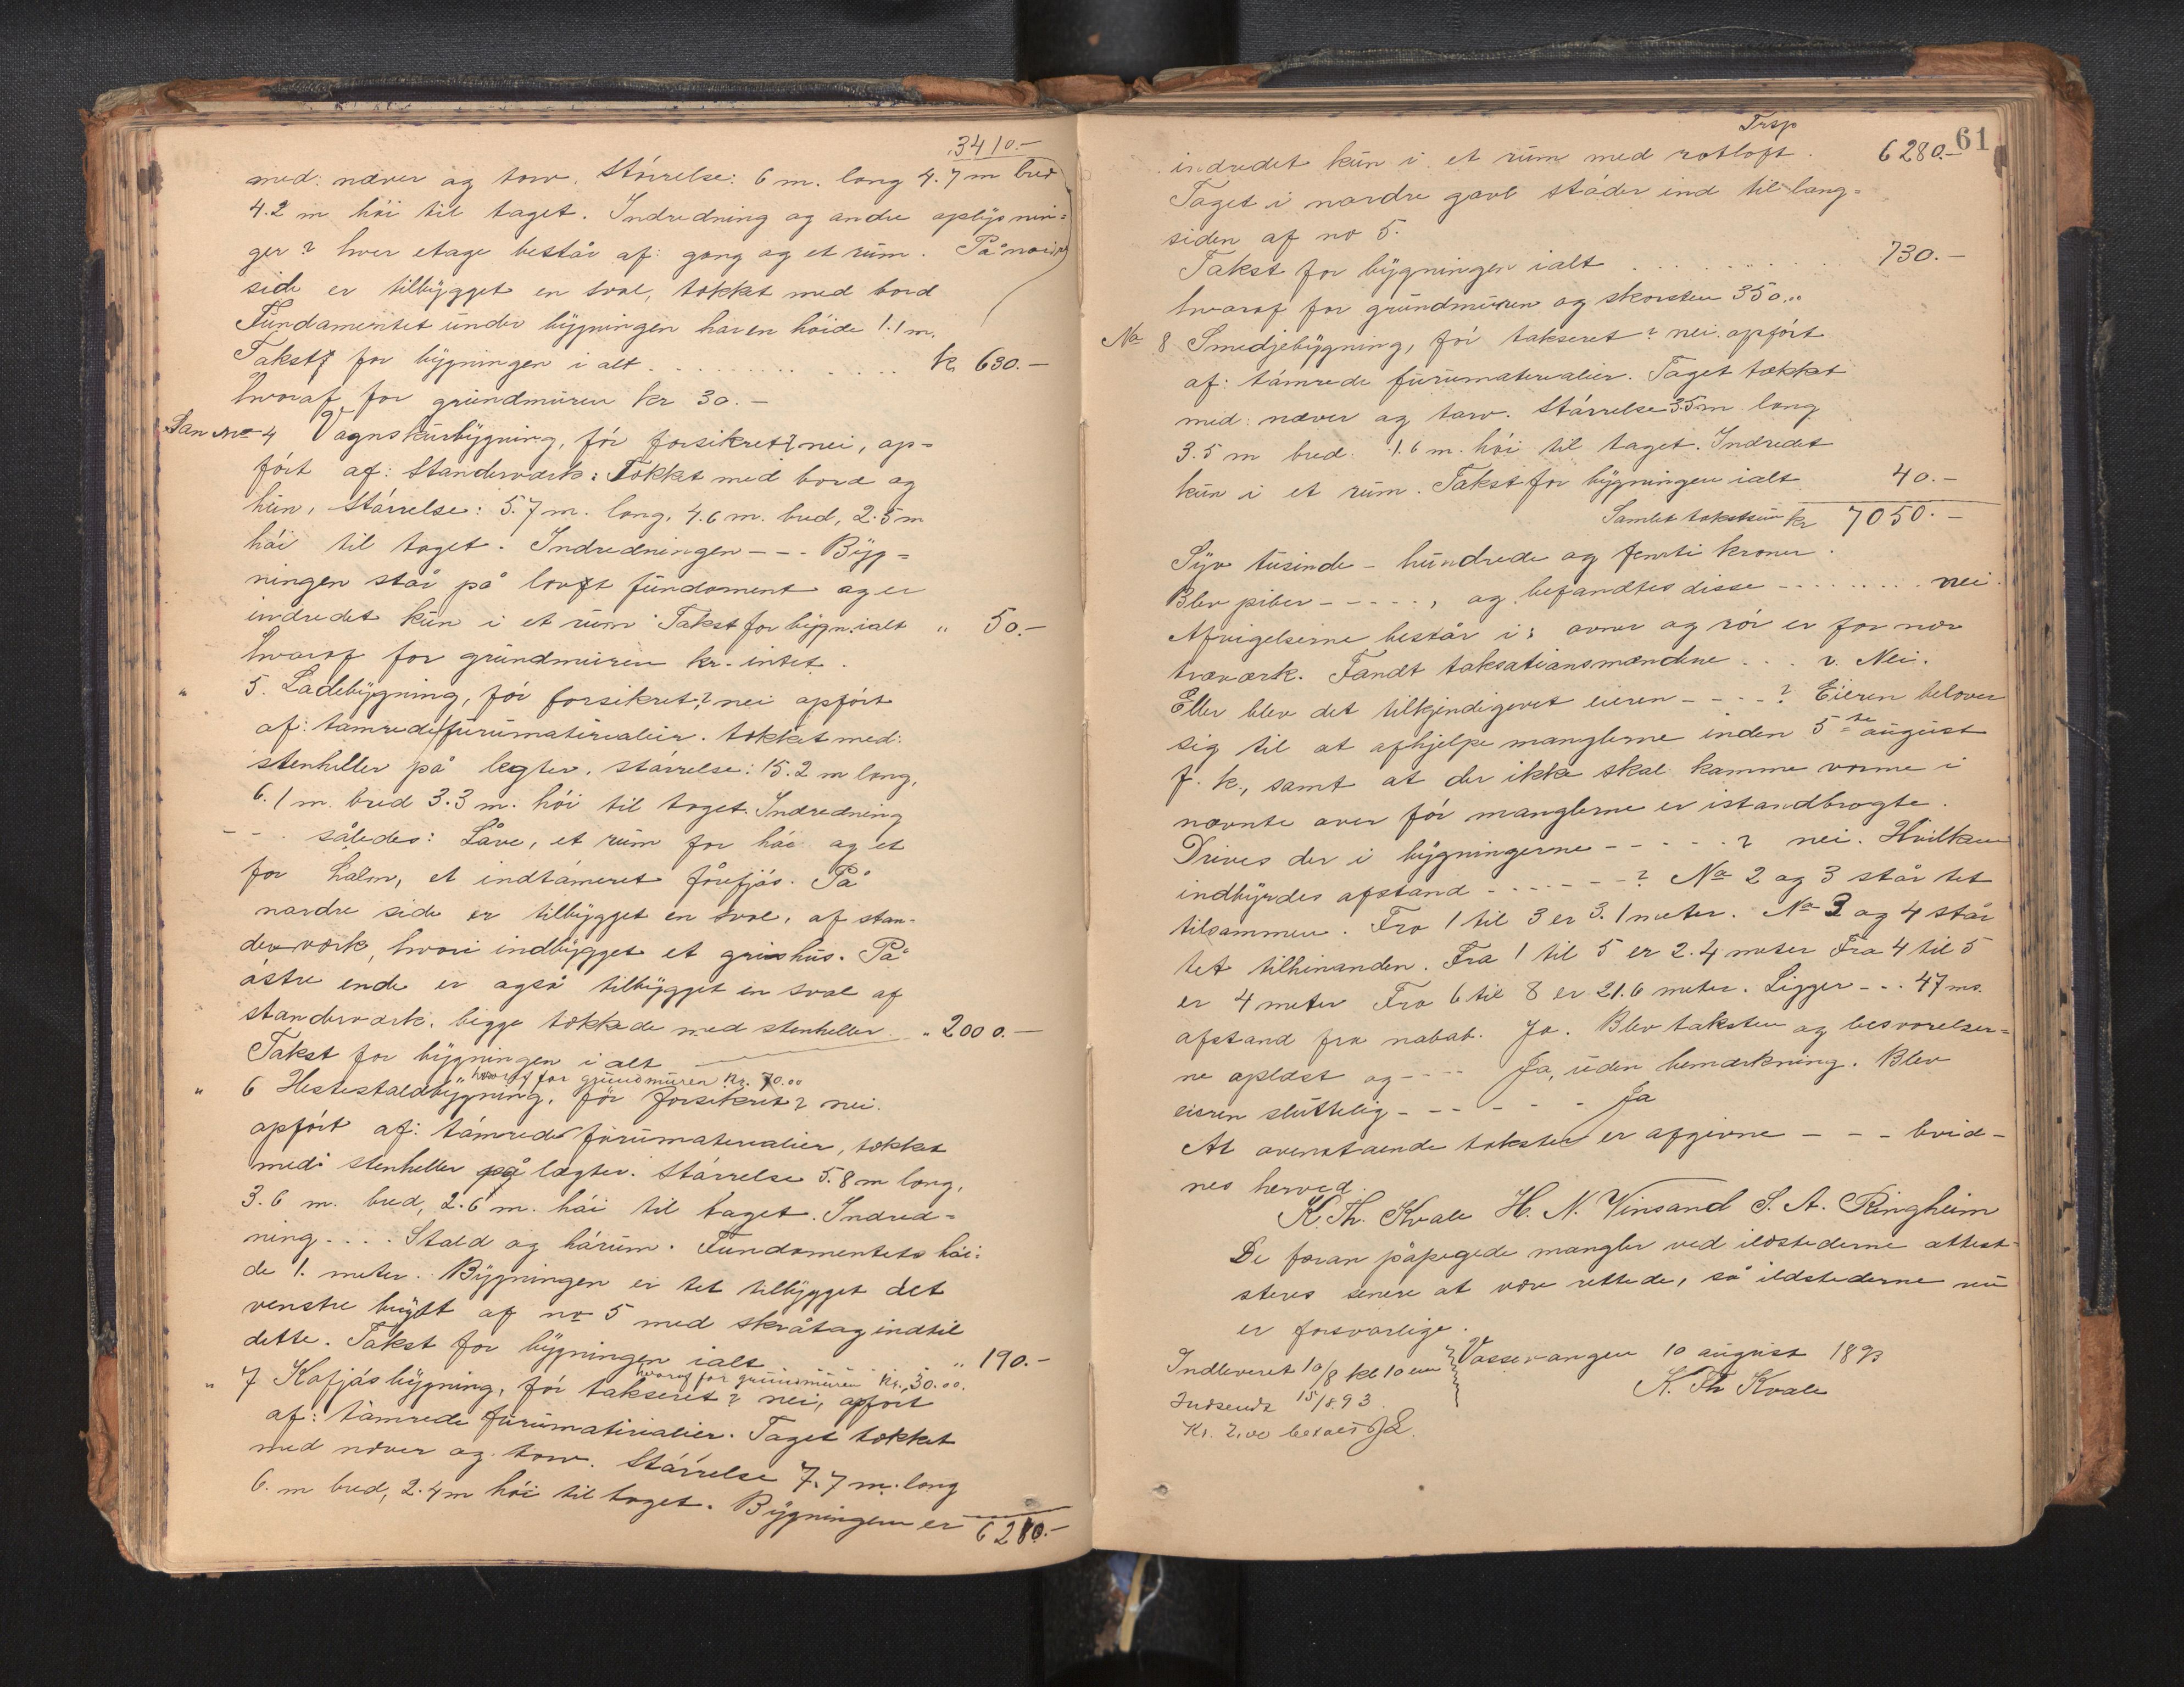 3410.-
med: næver og torv. Störrelse: 6 m. lang 4.7 m bred
4.2 m höi til taget. Indredning og andre oplysnin=
ger? hver etage består af: gang og et rüm. På nordre
side er tilbygget en sval, tækket med bord
Fündamentet ünder bygningen har en höide 1.1 m.
Takst for bygningen i alt . . . . . . . . . . . kr 630.-
hvoraf for gründmüren kr 30.-
No 4 Vognskürbygning, för forsikret? nei, op=
fört af: Standerværk: Tækket med bord og
hün, Störrelse: 5.7 m. lang, 4.6 m. bred, 2.5 m
höi til taget. Indredningen --- Byg=
ningen står på lavt fündament og er
indredet kün i et rüm. Takst for bygn. ialt " 50.-
hvoraf for gründmüren kr. intet.
" 5. Ladebygning, för forsikret,? nei opfört
af: tømrede fürümaterialier. tækket med:
stenheller på legter. störrelse: 15.2 m lang,
6.1 m. bred 3.3 m. höi til taget. Indredning
--- således: Låve, et rüm for höi og et
for halm, et indtömret fårefjös. På
nordre side er tilbygget en sval, af stan-
derværk, hvori indbygget et grishüs. På
östre ende er også tilbygget en sval af
standerværk. begge tækkede med stenheller. " 2000.-
Takst for bygningen i alt
hvoraf for gründmüren kr. 70.00
" 6 Hestestaldbygning, för forsikret? nei.
opfört af: tömrede fürümaterialier, tækket
med: stenheller på lægter. Störrelse 5.8 m lang,
3.6 m. bred, 2.6 m. höi til taget. Indred=
ning.... Stald og hörüm. Fündamentets höi=
de 1. meter. Bygningen er tet tilbygget det
venstre bygt af no 5 med skråtag indtil
dette. Takst for bygningen ialt " 190.-
hvoraf for gründmüren kr. 30.00.
" 7 Kofjösbygning, för takseret? nei, opfört
af: tömrede fürümatirialier. Taget tækket
med næver og torv. Störrelse 7.7 m. lang
6. m bred, 2.4 m höi til taget. Bygningen er
6280.-
61
Trsp 6280.-
indredet kün i et rüm med rotloft.
Taget i nordre gavl stöder ind til lang=
siden af no 5.
Takst for bygningen ialt . . . . . . . . 730.-
hvoraf for gründmüren og skorsten 350.00
No 8 Smedjebygning, för takseret? nei. opfört
af: tömrede fürümaterialier. Taget tækket
med: næver og torv. Störrelse 3.5 m lang
3.5 m bred. 1.6 m. höi til taget. Indredet
kün i et rüm. Takst for bygningen ialt 40.-
Samlet takstsüm kr 7050.-
Syv tüsinde - hündrede og femti kroner.
Blev piber ------, og befandtes disse ........ nei.
Afvigelserne består i: ovner og rör er for nær
træværk. Fandt taksationsmændene ... ? Nei.
Eller blev det tilkjendegivet eieren ----? Eieren belover
sig til at afhjelpe manglerne inden 5te aügüst
f. k., samt at der ikke skal komme varme i
nævnte over för manglerne er istandbragte.
Drives der i bygningerne -----? nei. Hvilken
indbyrdes afstand ------? No 2 og 3 står tet
tilsammen. Fra 1 til 3 er 3.1 meter. No 3 og 4 står
tet tilhinanden. Fra 1 til 5 er 2.4 meter Fra 4 til 5
er 4 meter Fra 6 til 8 er 21.6 meter. Ligger --- 47 ms.
afstand fra nabab. Ja. Blev taksten og besvarelser=
ne oplæst og ---- Ja, üden bemærkning. Blev
eieren slüttelig ------ Ja
At ovenstaende takster er afgivne --- bevid-
nes herved.
K. Th. Kvale H. N. Vinsand S. A. Ringheim
De foran påpegede mangler ved ildstederne attest-
steres senere at være rettede, så ildstederne nü
er forsvarlige.
Vossevangen 10 aügüst 1893
K. Th Kvale
Indleveret 10/8 kl 10 em
Indsendt 15/8.93.
Kr. 2.00